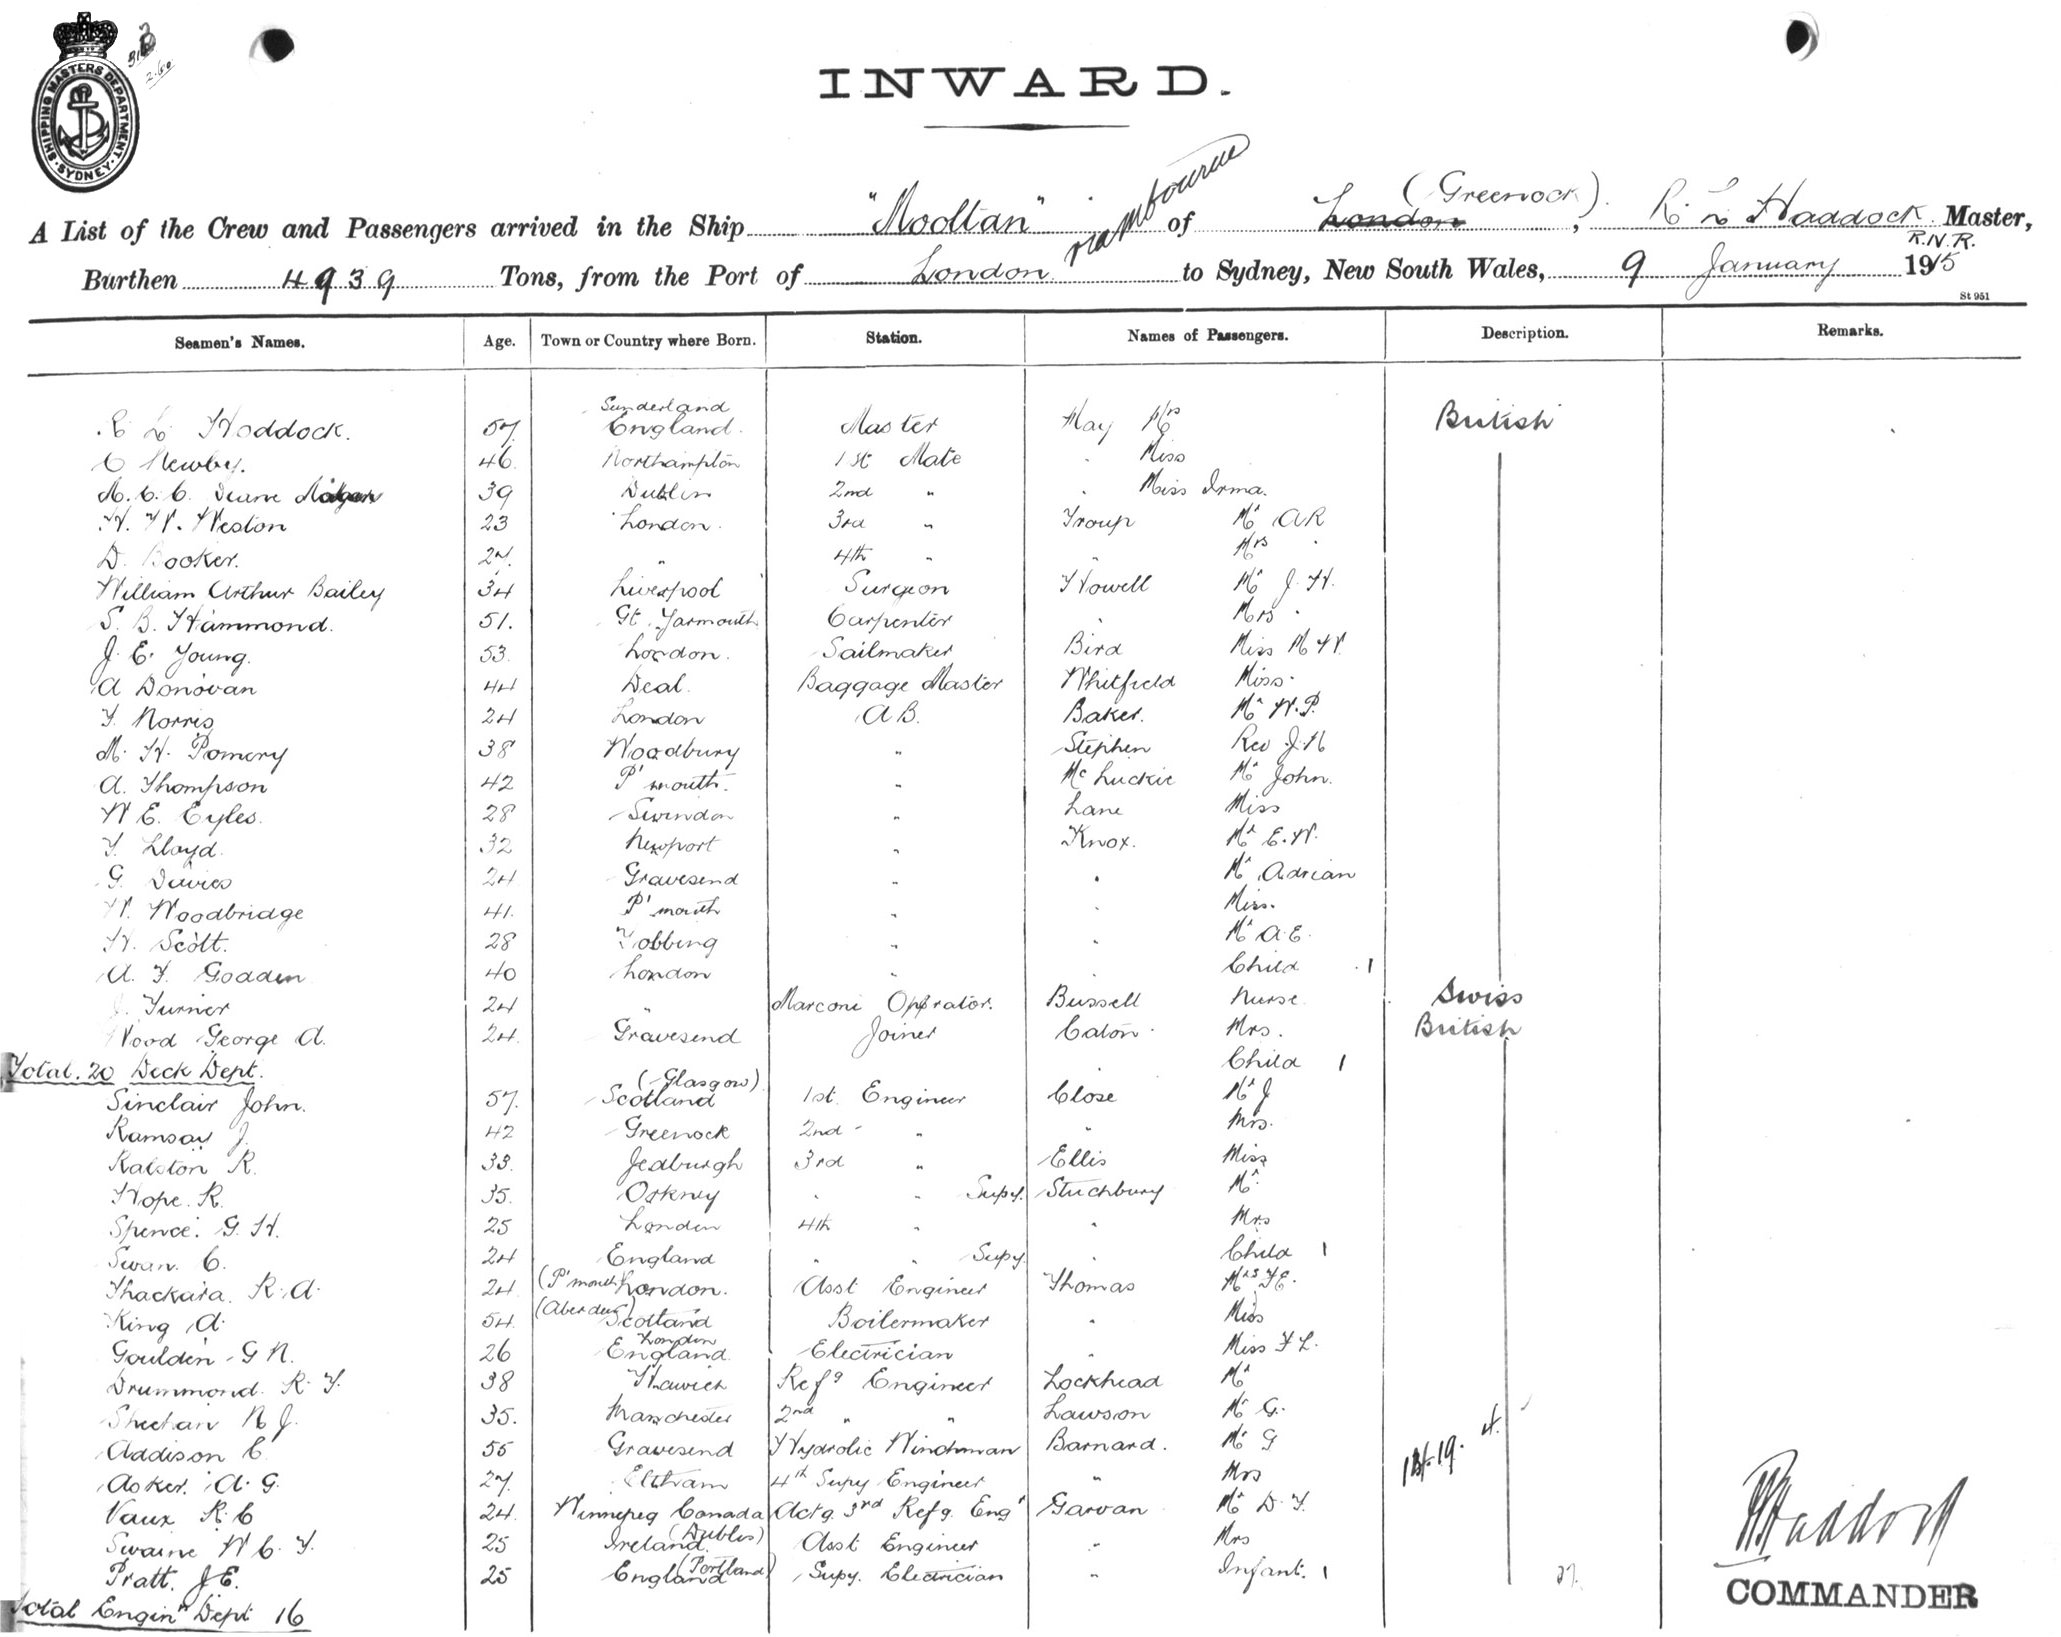 SHIPPING MASTERS DEPARTMENT. SYDNEY.
INWARD.
A List of the Crew and Passengers arrived in the Ship "Mooltan" of London (Greenock), R. L. Haddock Master, R.N.R.
Burthen 4939 Tons, from the Port of London to Sydney, New South Wales, 9 January 1915
St 951
Seamen's Names. Age. Town or Country where Born. Station. Names of Passengers. Description. Remarks.
R L Haddock. 57 Sunderland England. Master May Mrs British
C Newby. 46 Northampton 1st Mate " Miss
M. C. C. Deane 39 Dublin 2nd " " Miss Irma.
H. W. Weston 23 London. 3rd " Troup Mr A R
D. Booker. 27. " 4th " " Mrs "
William Arthur Bailey 34 Liverpool Surgeon Howell Mr J. H.
S. B. Hammond. 51. Gt. Yarmouth Carpenter " Mrs "
J. E. Young. 53. London. Sailmaker Bird Miss M W
A Donovan 44 Deal. Baggage Master Whitfield Miss.
T. Norris 24 London A B. Baker. Mr W. P.
M. H. Pomery 38 Woodbury " Stephen Rev J. N
A. Thompson 42 P'mouth. " McLuckie Mr John.
W E. Eyles. 28 Swindon " Lane Miss
T. Lloyd. 32 Newport " Knox. Mr E. W.
G. Davies 24 Gravesend " " Mr Adrian
W. Woodbridge 41. P'mouth " " Miss.
H. Scott. 28 Fobbing " " Mr A. E.
A. F. Godden 40 London " " Child 1
J. Turner 24 " Marconi Operator. Bussell Nurse Swiss
Wood George A. 24. Gravesend Joiner Caton Mrs. British
Total. 20 Deck Dept. " Child 1
Sinclair John. 57. (Glasgow) Scotland 1st. Engineer Close Mr J
Ramsay J. 42 Greenock 2nd " " Mrs.
Ralston R. 33. Jedburgh 3rd " Ellis Miss
Hope. R. 35. Orkney " " Supy. Stuchbury Mr
Spence. G. H. 25 London 4th " " Mrs
Swan. C. 24 England " " Supy. " Child 1
Thackara. R. A. 24 (P'mouth) London. Asst Engineer Thomas Mrs F E.
King A. 54. (Aberdeen) Scotland Boilermaker " Miss
Goulden G N. 26 London England. Electrician " Miss F L.
Drummond. R. F. 38 Hawick Refg Engineer Lockhead Mr
Sheehan N J. 35. Manchester 2nd " " Lawson Mr G.
Addison C. 55 Gravesend Hydrolic Winchman Barnard. Mr G
Asker. A. G. 27. Eltham 4th Supy Engineer " Mrs
Vaux R. C 24. Winnepeg Canada Actg. 3rd Refg. Engr Garvan Mr D. F.
Swaine W C. F. 25 Ireland (Dublin) Asst Engineer " Mrs
Pratt. J E. 25 England (Portland) Supy. Electrician " Infant. 1
Total Enginr Dept 16
COMMANDER